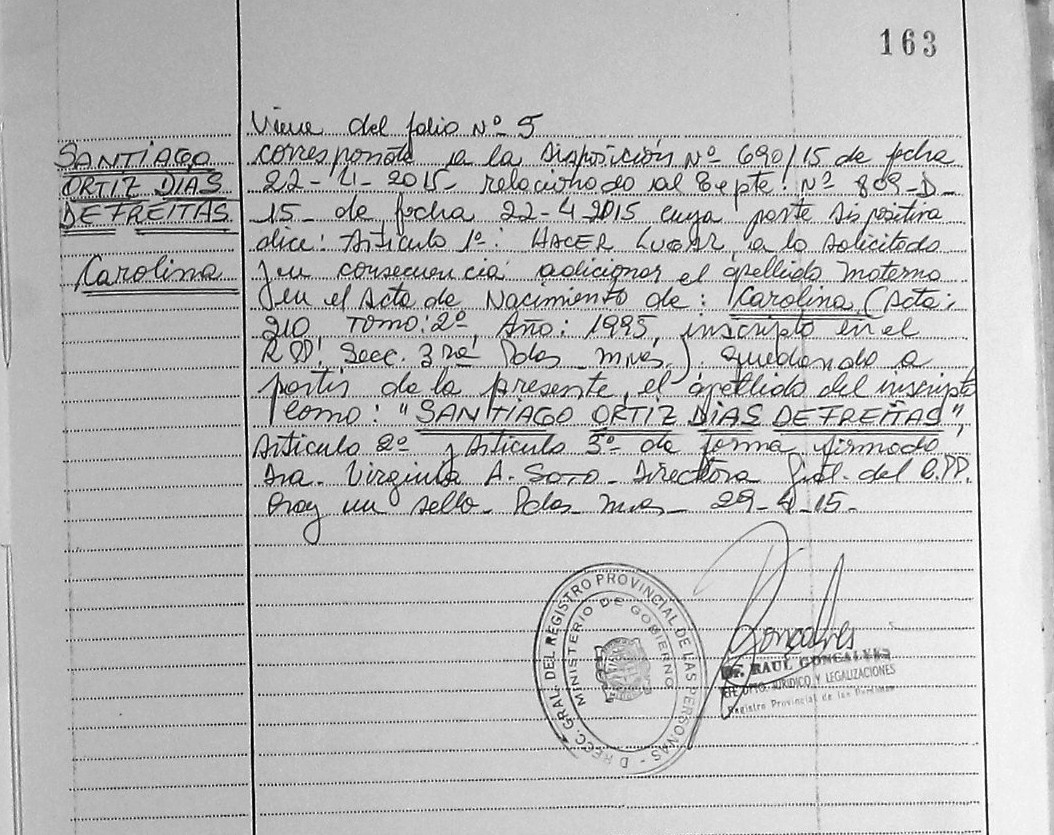 163
Viene del folio Nº 5
SANTIAGO
ORTIZ DIAS
DE FREITAS
Carolina
corresponde a la Disposición Nº 690/15 de fecha
22-4-2015- relacionado al Expte. Nº 809-D-
15- de fecha 22-4-2015 cuya parte dispositiva
dice: Artículo 1º: HACER LUGAR a lo solicitado
y en consecuencia adicionar el apellido materno
en el Acta de Nacimiento de: Carolina (Acta:
210, Tomo: 2º, Año: 1995, inscripto en el
R.PP. Secc. 3ra Pdas. Mnes.). Quedando a
partir de la presente, el apellido del inscripto
como: "SANTIAGO ORTIZ DIAS DE FREITAS",
Artículo 2º y Artículo 3º de forma firmado
Dra. Virginia A. Soto- Directora Gral. del R.PP.
Hay un sello- Pdas. Mnes- 29-4-15-
DIRECC. GRAL. DEL REGISTRO PROVINCIAL DE LAS PERSONAS
MINISTERIO DE GOBIERNO
Gonçalves
Dr. RAUL GONCALVES
JEFE DPTO. JURIDICO Y LEGALIZACIONES
Registro Provincial de las Personas